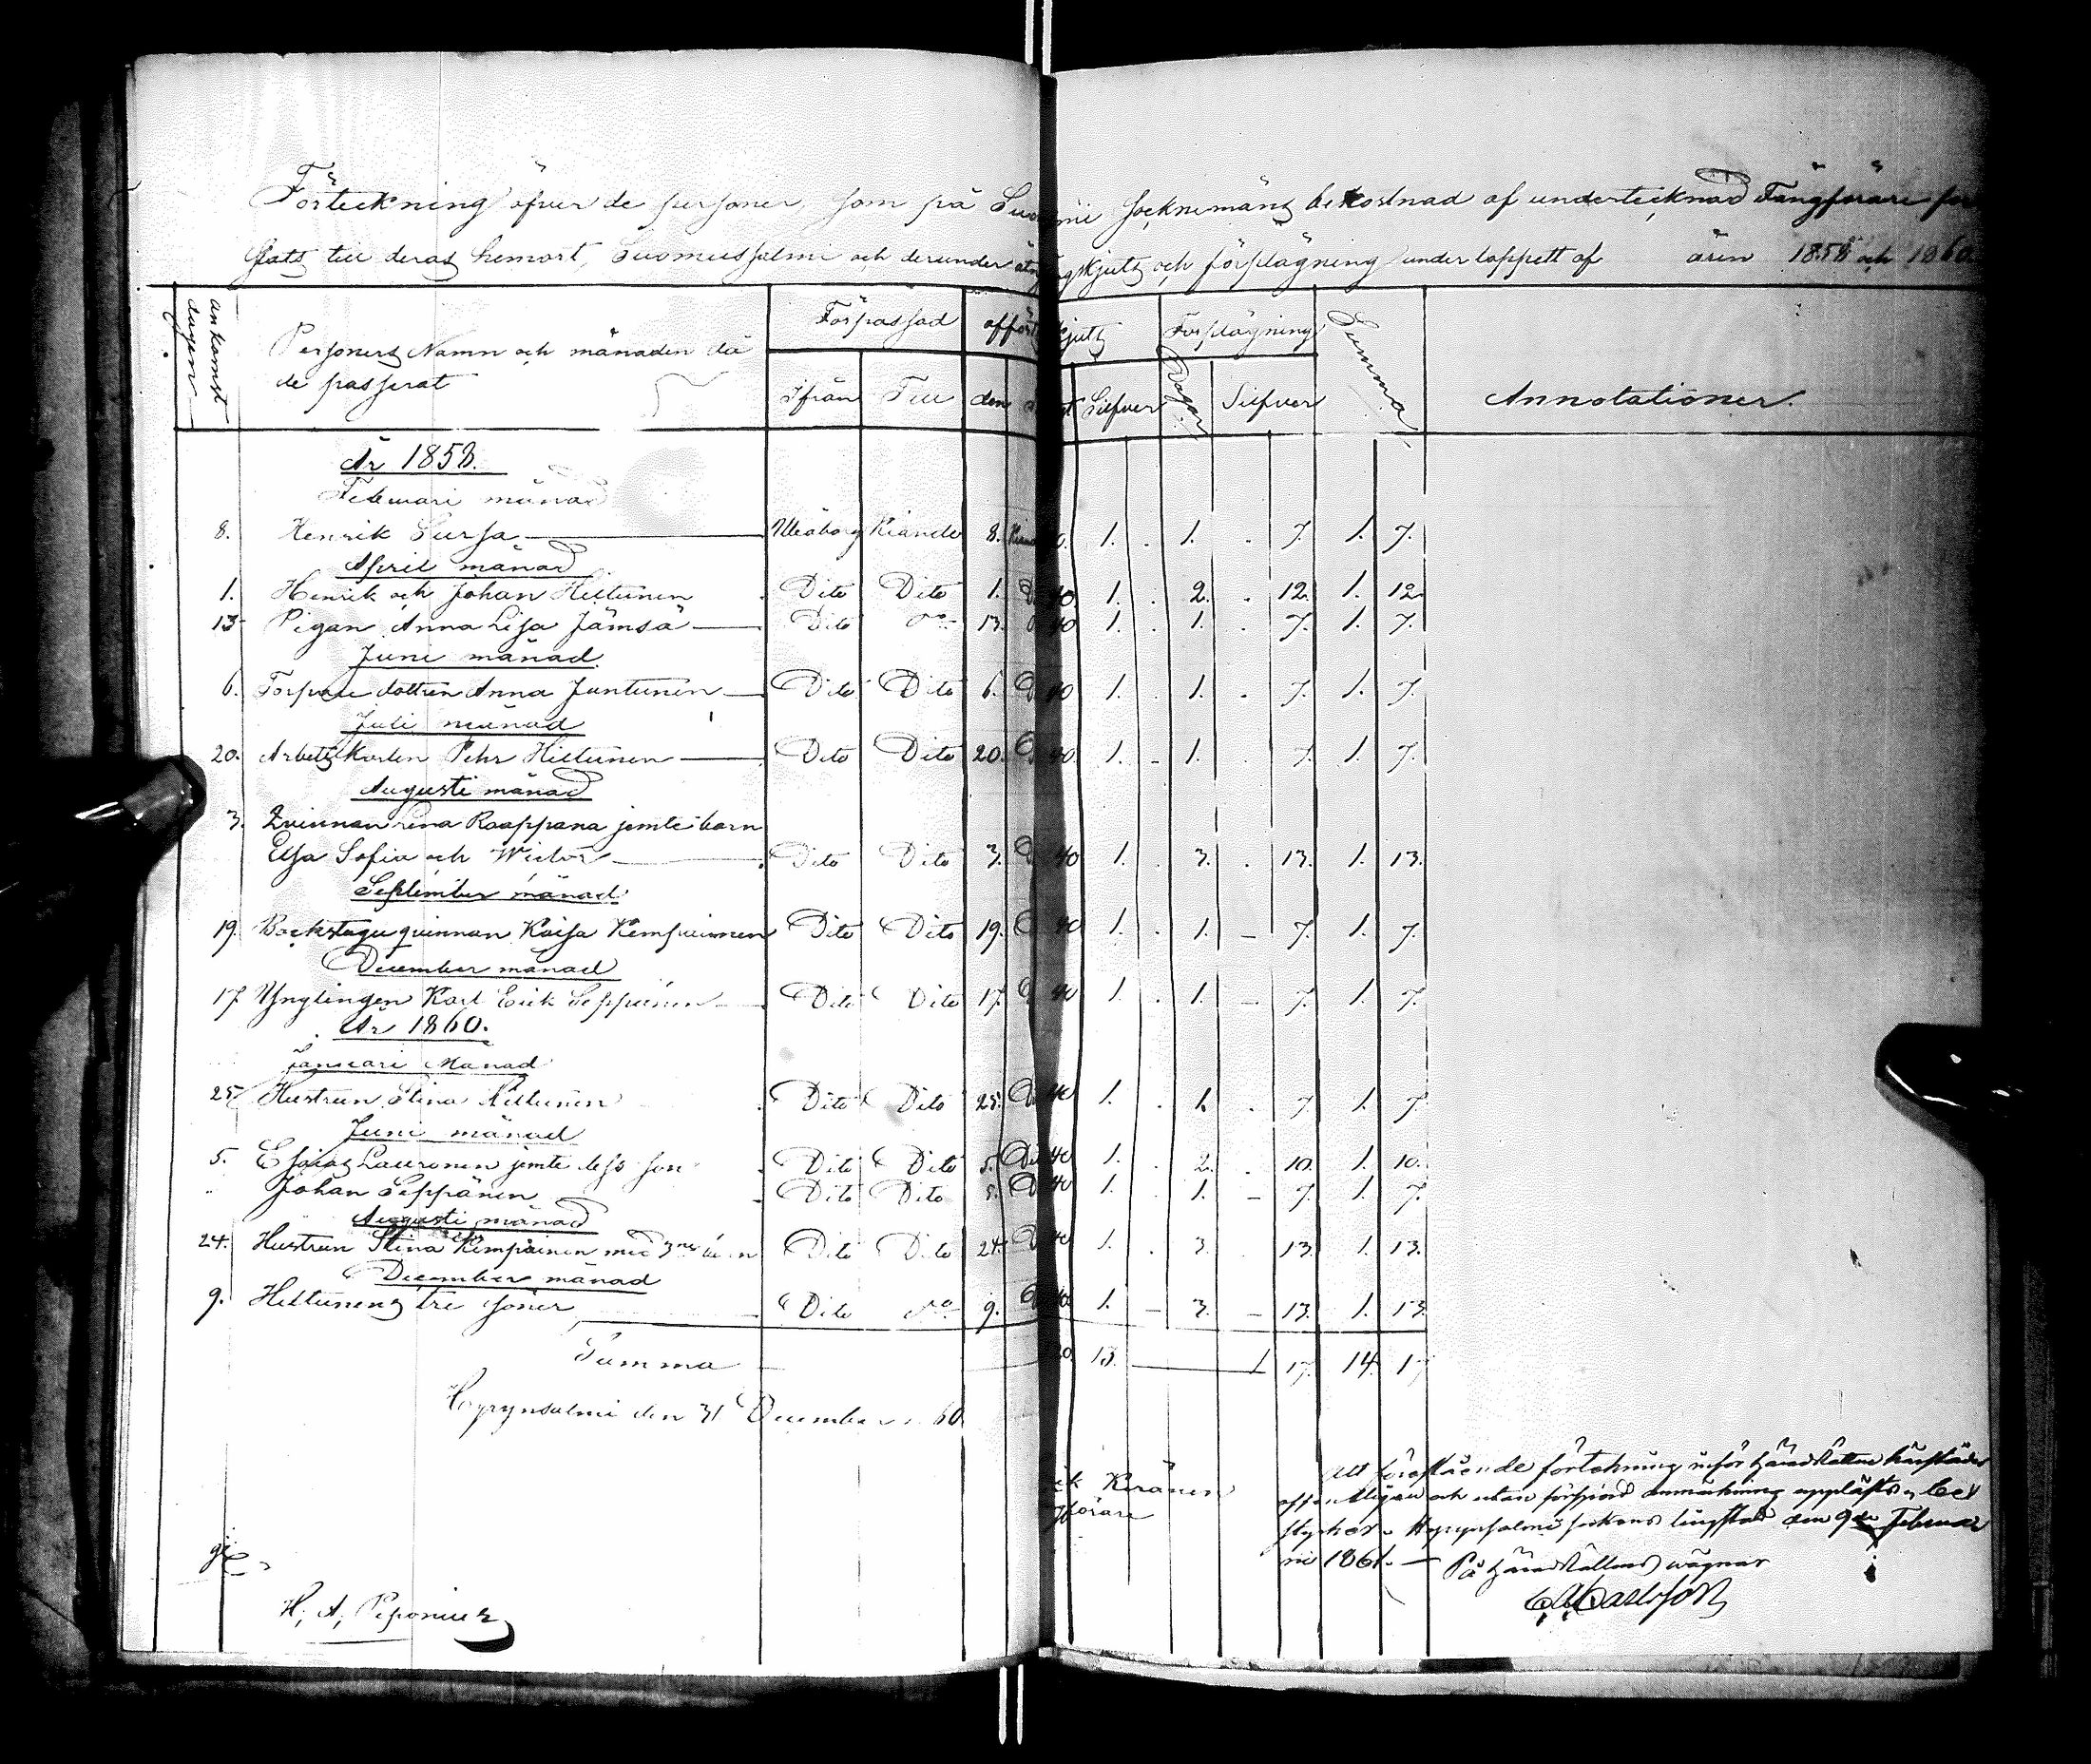 Förteckning öfver de personer, som på Suo mii Socknemäns bekostnad af undertecknad Fångförare for
slats till deras hemort, Suomussalmi och derunder åtn skjuts och förplägning under loppett af åren 1858 och 1860
ankomst dagen
Personers Namn och månaden då de passerat
Förpassad
Ifrån Till
den
skjuts
Silfver
Förplägning
Dagar
Silfver
Summa
Annotationer.
År 1858.
Februari månad
8. Henrik Sursa Uleåborg Kiando 8. 1. . 1. . 7. 1. 7.
April månad
1. Henrik och Johan Hiltunen Dito Dito 1. D 40. 1. . 2. . 12. 1. 12.
13 Pigan Anna Lisa Jämsä Dito Do 13. 40 1. . 1. . 7. 1. 7.
Juni månad
6. Torpare dottren Anna Juntunen Dito Dito 6. D 40 1. . 1. . 7. 1. 7.
Juli månad
20. Arbetskarlen Pehr Hiltunen Dito Dito 20. D 40. 1. - 1. 7. 1. 7.
Augusti månad
3. Qvinnan Lena Raappana jemte barn
Elsa Sofia och Wictor Dito Dito 3. D 40 1. . 3. . 13. 1. 13.
September månad
19. Backstugu qvinnan Kaisa Kempainen Dito Dito 19. D 40 1. . 1. - 7. 1. 7.
December månad
17. Ynglingen Karl Erik Seppänen Dito Dito 17. D 40 1. . 1. - 7. 1. 7.
År 1860.
Januari Månad
25 Hustrun Stina Hiltunen Dito Dito 25. D 40 1. . 1. . 7. 1. 7.
Juni månad
5. Esaias Lauronen jemte dess son Dito Dito 5. Di 40 1. . 2. . 10. 1. 10.
" Johan Seppänen Dito Dito 5. D 40 1. . 1. - 7. 1. 7.
Augusti månad
24. Hustrun Stina Kempainen med 3ne barn Dito Dito 24. D 40 1. . 3. . 13. 1. 13.
December månad
9. Hiltunens tre söner Dito Do 9. D 40 1. - 3. - 13. 1. 13.
Summa 13. 1 17. 14. 17
Hyrynsalmi den 31 December 60
ik Keränen
förare
Att förestående förtekning inför Häradsrätten härstädes
offentligen och utan förspord anmärkning upplästs,
Hyrynsalmi sockens tingstad den 9de Februa
rii 1861. På Häradsrättens wägnar
H. A. Peponius